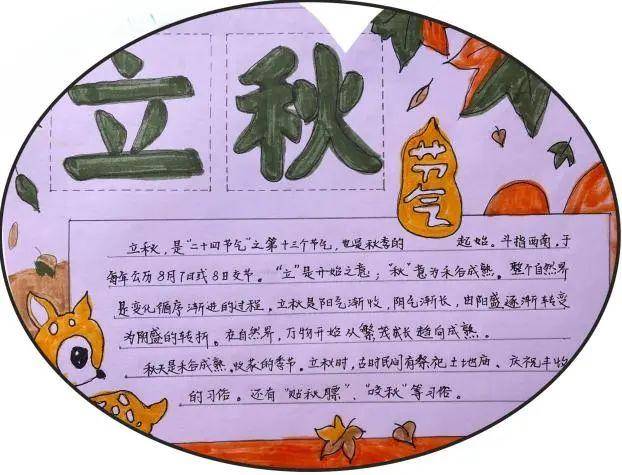 立秋
节气
立秋，是“二十四节气”之第十三个节气，也是秋季的 起始。斗指西南，于
每年公历8月7日或8日交节。“立”是开始之意；“秋”意为禾谷成熟。整个自然界
是变化循序渐进的过程，立秋是阳气渐收，阴气渐长，由阳盛逐渐转变
为阴盛的转折。在自然界，万物开始从繁茂成长趋向成熟。
秋天是禾谷成熟、收获的季节。立秋时，古时民间有祭祀土地庙、庆祝丰收
的习俗。还有“贴秋膘”、“咬秋”等习俗。